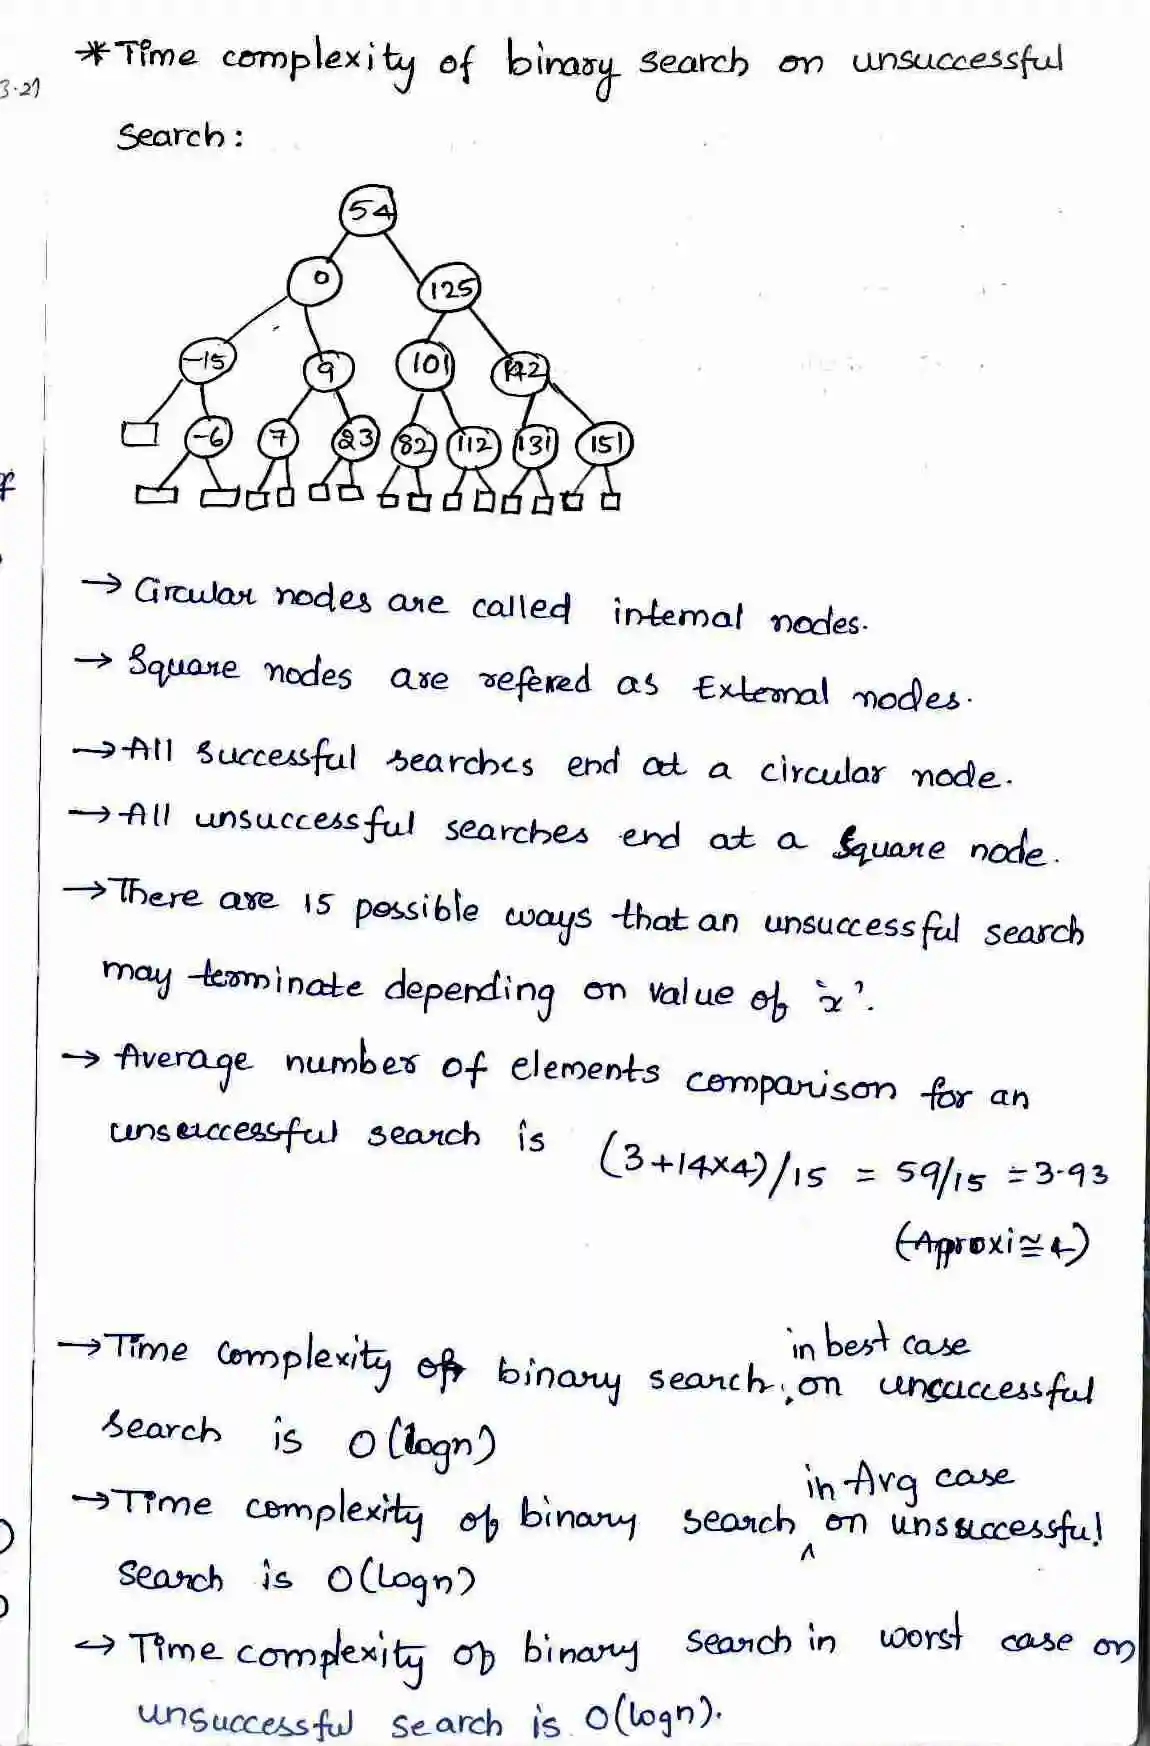 *Time complexity of binary search on unsuccessful
3.27
Search:
54
0
125
-15
9
101
142
-6
7
23
82
112
131
151
→ Circular nodes are called internal nodes.
→ Square nodes are refered as External nodes.
→ All successful searches end at a circular node.
→ All unsuccessful searches end at a square node.
→ There are 15 possible ways that an unsuccessful search
may terminate depending on value of 'x'.
→ Average number of elements comparison for an
unsuccessful search is (3+14×4)/15 = 59/15 = 3.93
(Aproxi≅4)
in best case
→ Time complexity of binary search, on unsuccessful
search is O(logn)
in Avg case
→ Time complexity of binary search ^ on unsuccessful
search is O(logn)
→ Time complexity of binary search in worst case on
unsuccessful search is O(logn).